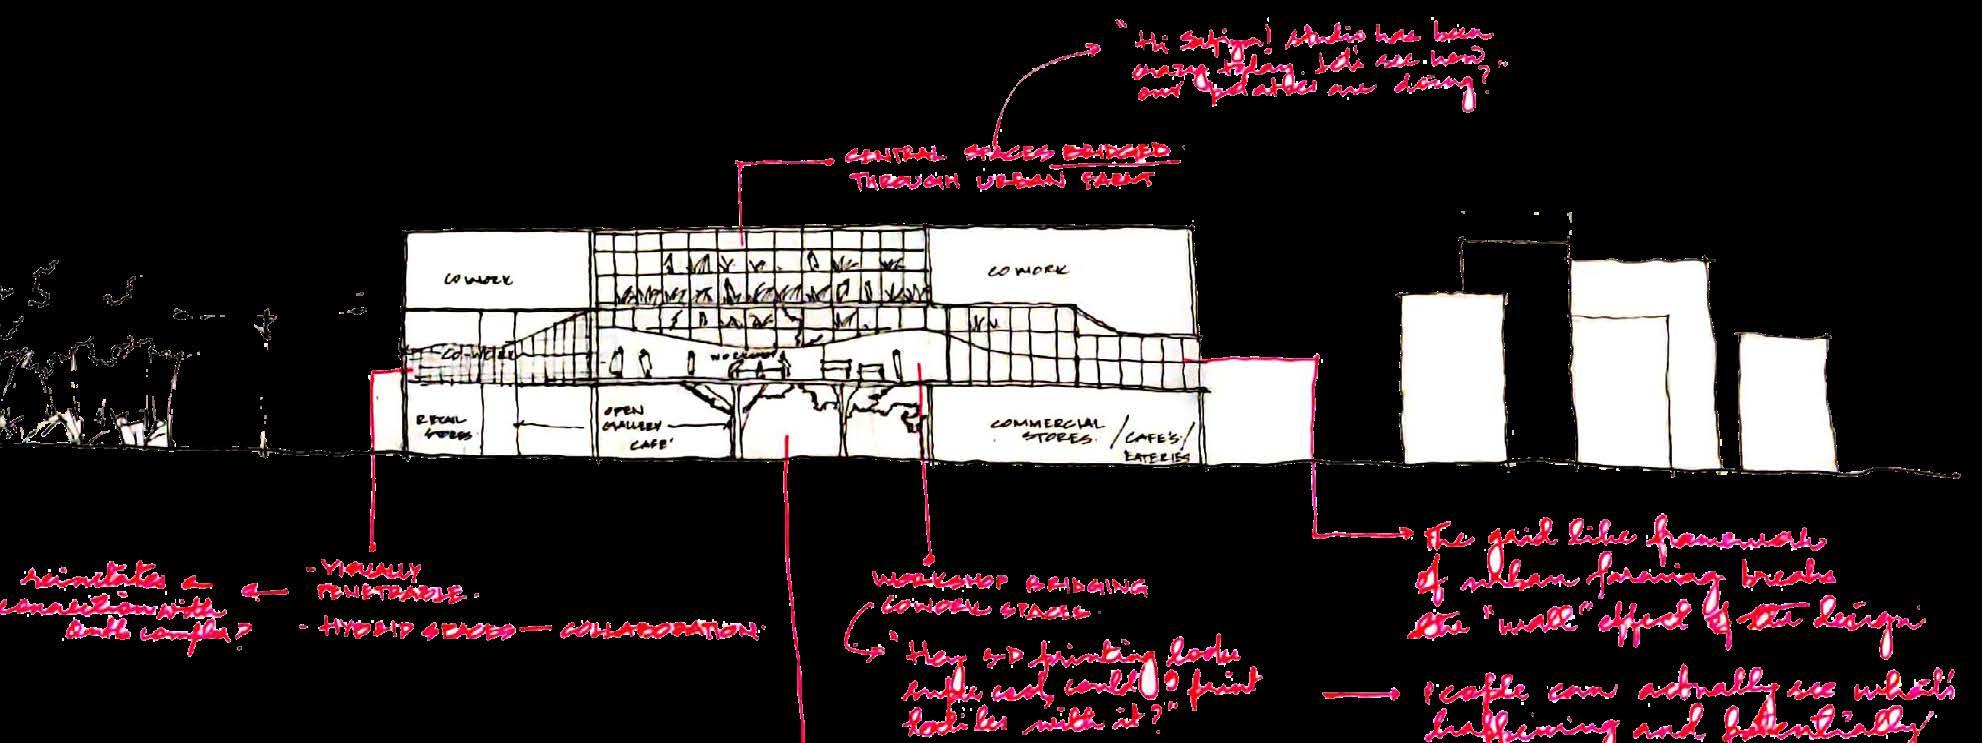 "Hi Safiya! studio has been
crazy today. Let's see how
our potatoes are doing?"
CENTRAL SPACES BRIDGED
THROUGH URBAN FARM
COWORK
COWORK
CO-WORK
WORKSHOP
RETAIL
STORES
OPEN
GALLERY
CAFE'
COMMERCIAL
STORES. / CAFE'S /
EATERIES
reinstates a
connection with
- VISUALLY
PENETRABLE.
- HYBRID SPACES — COLLABORATION
WORKSHOP BRIDGING
COWORK SPACES.
"Hey 3-D printing looks
super cool, could I print
with it?"
The grid like framework
of urban farming breaks
the "wall" effect of the design
People can actually see what's
happening and potentially